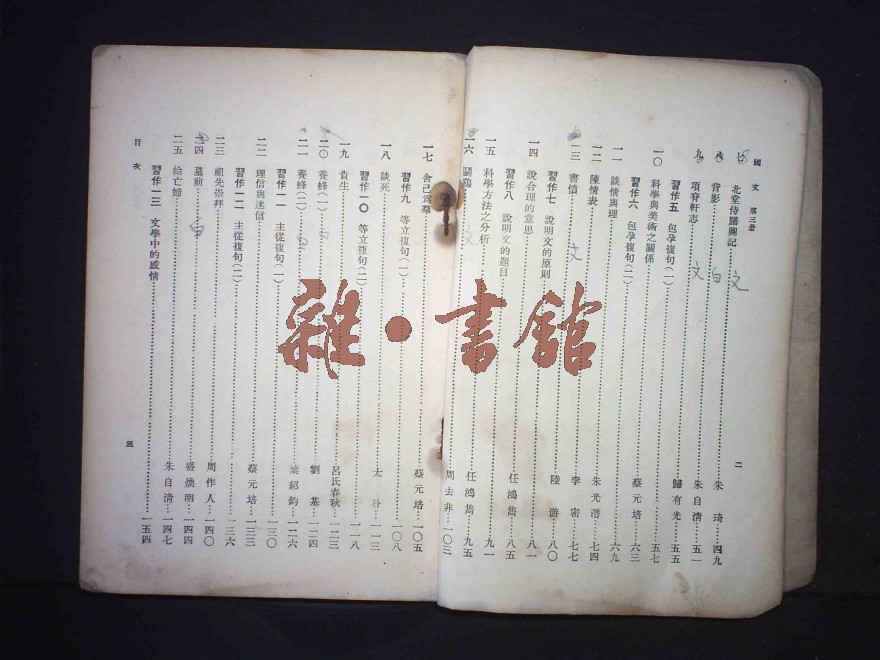 國文 第三册
七 北堂侍膳圖記 朱琦 四九
八 背影 朱自清 五一
九 項脊軒志 歸有光 五五
習作五 包孕複句(一) 五七
一〇 科學與美術之關係 蔡元培 六三
習作六 包孕複句(二) 六九
一一 談情與理 朱光潛 七四
一二 陳情表 李密 七七
一三 書憤 陸游 八〇
習作七 說明文的原則 八一
一四 說合理的意思 任鴻雋 八五
習作八 說明文的題目 九一
一五 科學方法之分析 任鴻雋 九五
一六 鬭鷄 周去非 一〇三
二
文
白
文
文
文
一七 舍己爲羣 蔡元培 一〇五
習作九 等立複句(一) 一〇八
一八 談死 太朴 一一三
習作一〇 等立複句(二) 一一八
一九 貴生 呂氏春秋 一二三
二〇 養蜂(一) 劉基 一二四
二一 養蜂(二) 葉紹鈞 一二六
習作一一 主從複句(一) 一三〇
二二 理信與迷信 蔡元培 一三三
習作一二 主從複句(二) 一三六
二三 祖先崇拜 周作人 一四〇
二四 墓前 盛煥明 一四四
二五 給亡婦 朱自清 一四七
習作一三 文學中的感情 一五四
目次
三
白
白
白
雜·書館